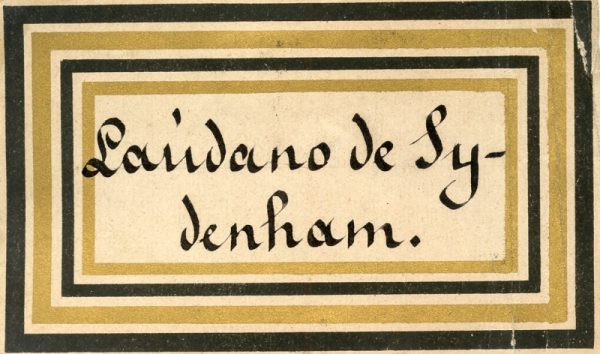 Laúdano de Sy-
denham.